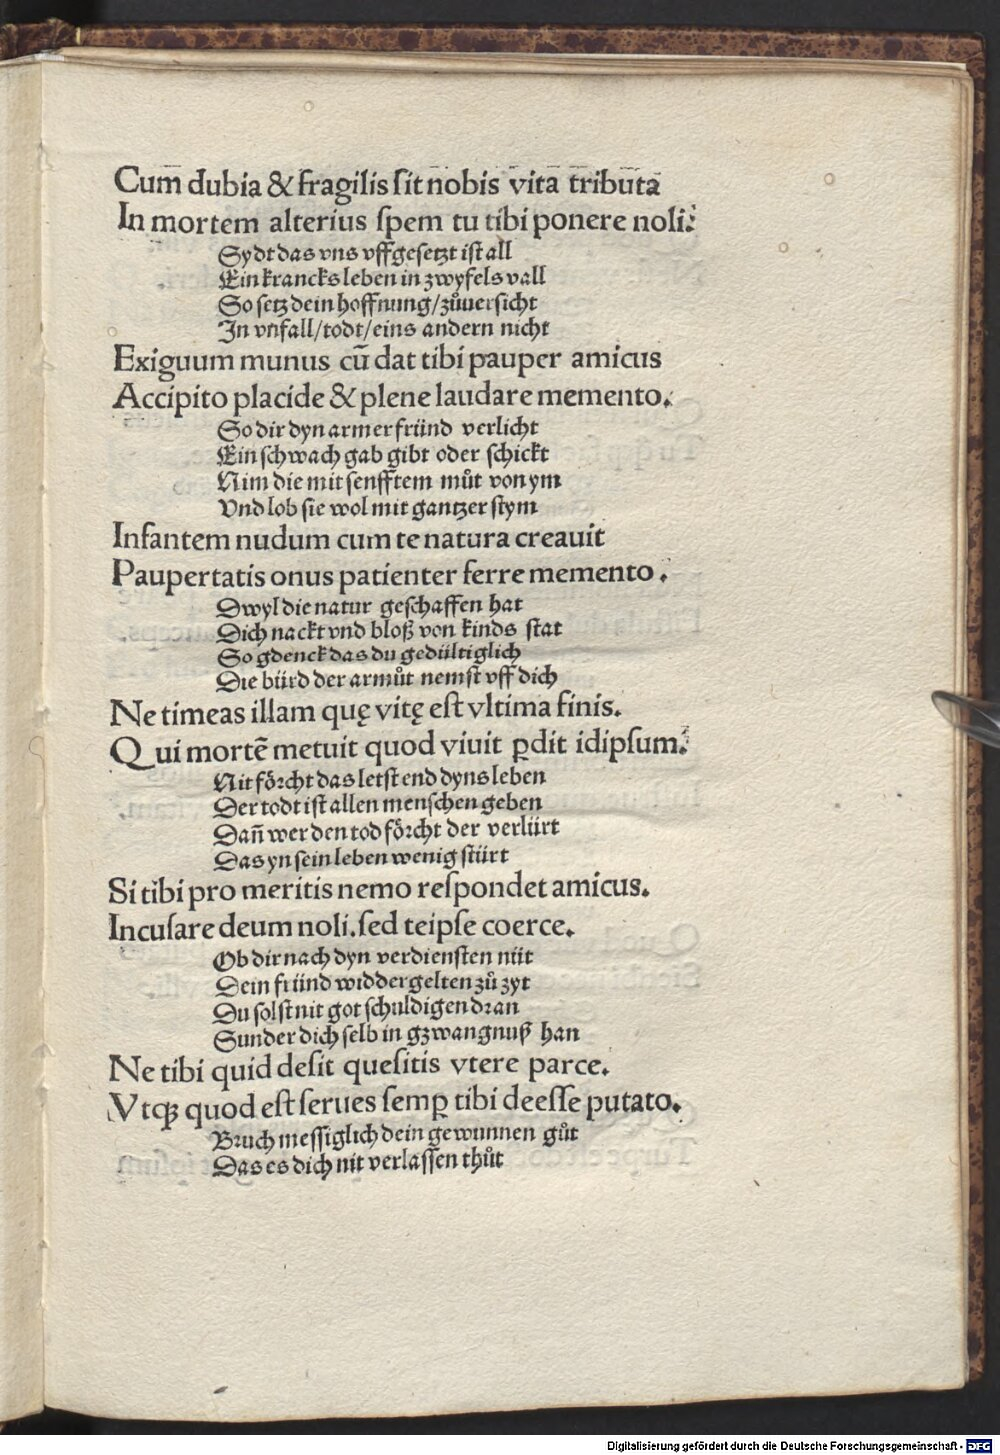 Cum dubia & fragilis sit nobis vita tributa
In mortem alterius spem tu tibi ponere noli.
Sydt das vns vffgesetzt ist all
Ein krancks leben in zwyfels vall
So setz dein hoffnung/zůuersicht
In vnfall/todt/eins andern nicht
Exiguum munus cū dat tibi pauper amicus
Accipito placide & plene laudare memento.
So dir dyn armer fründ verlicht
Ein schwach gab gibt oder schickt
Nim die mit senfftem můt von ym
Vnd lob sie wol mit gantzer stym
Infantem nudum cum te natura creauit
Paupertatis onus patienter ferre memento.
Dwyl die natur geschaffen hat
Dich nackt vnd bloß von kinds stat
So gdenck das du gedültiglich
Die bürd der armůt nemst vff dich
Ne timeas illam quę vitę est vltima finis.
Qui mortē metuit quod viuit ꝑdit idipsum.
Nit förcht das letst end dyns leben
Der todt ist allen menschen geben
Dañ wer den tod förcht der verlürt
Das yn sein leben wenig stürt
Si tibi pro meritis nemo respondet amicus.
Incusare deum noli. sed teipse coerce.
Ob dir nach dyn verdiensten nüt
Dein fründ widdergelten zů zyt
Du solst nit got schuldigen dran
Sunder dich selb in gzwangnuß han
Ne tibi quid desit quesitis vtere parce.
Vtqꝫ quod est serues semꝑ tibi deesse putato.
Bruch messiglich dein gewunnen gůt
Das es dich nit verlassen thůt
Digitalisierung gefördert durch die Deutsche Forschungsgemeinschaft - DFG